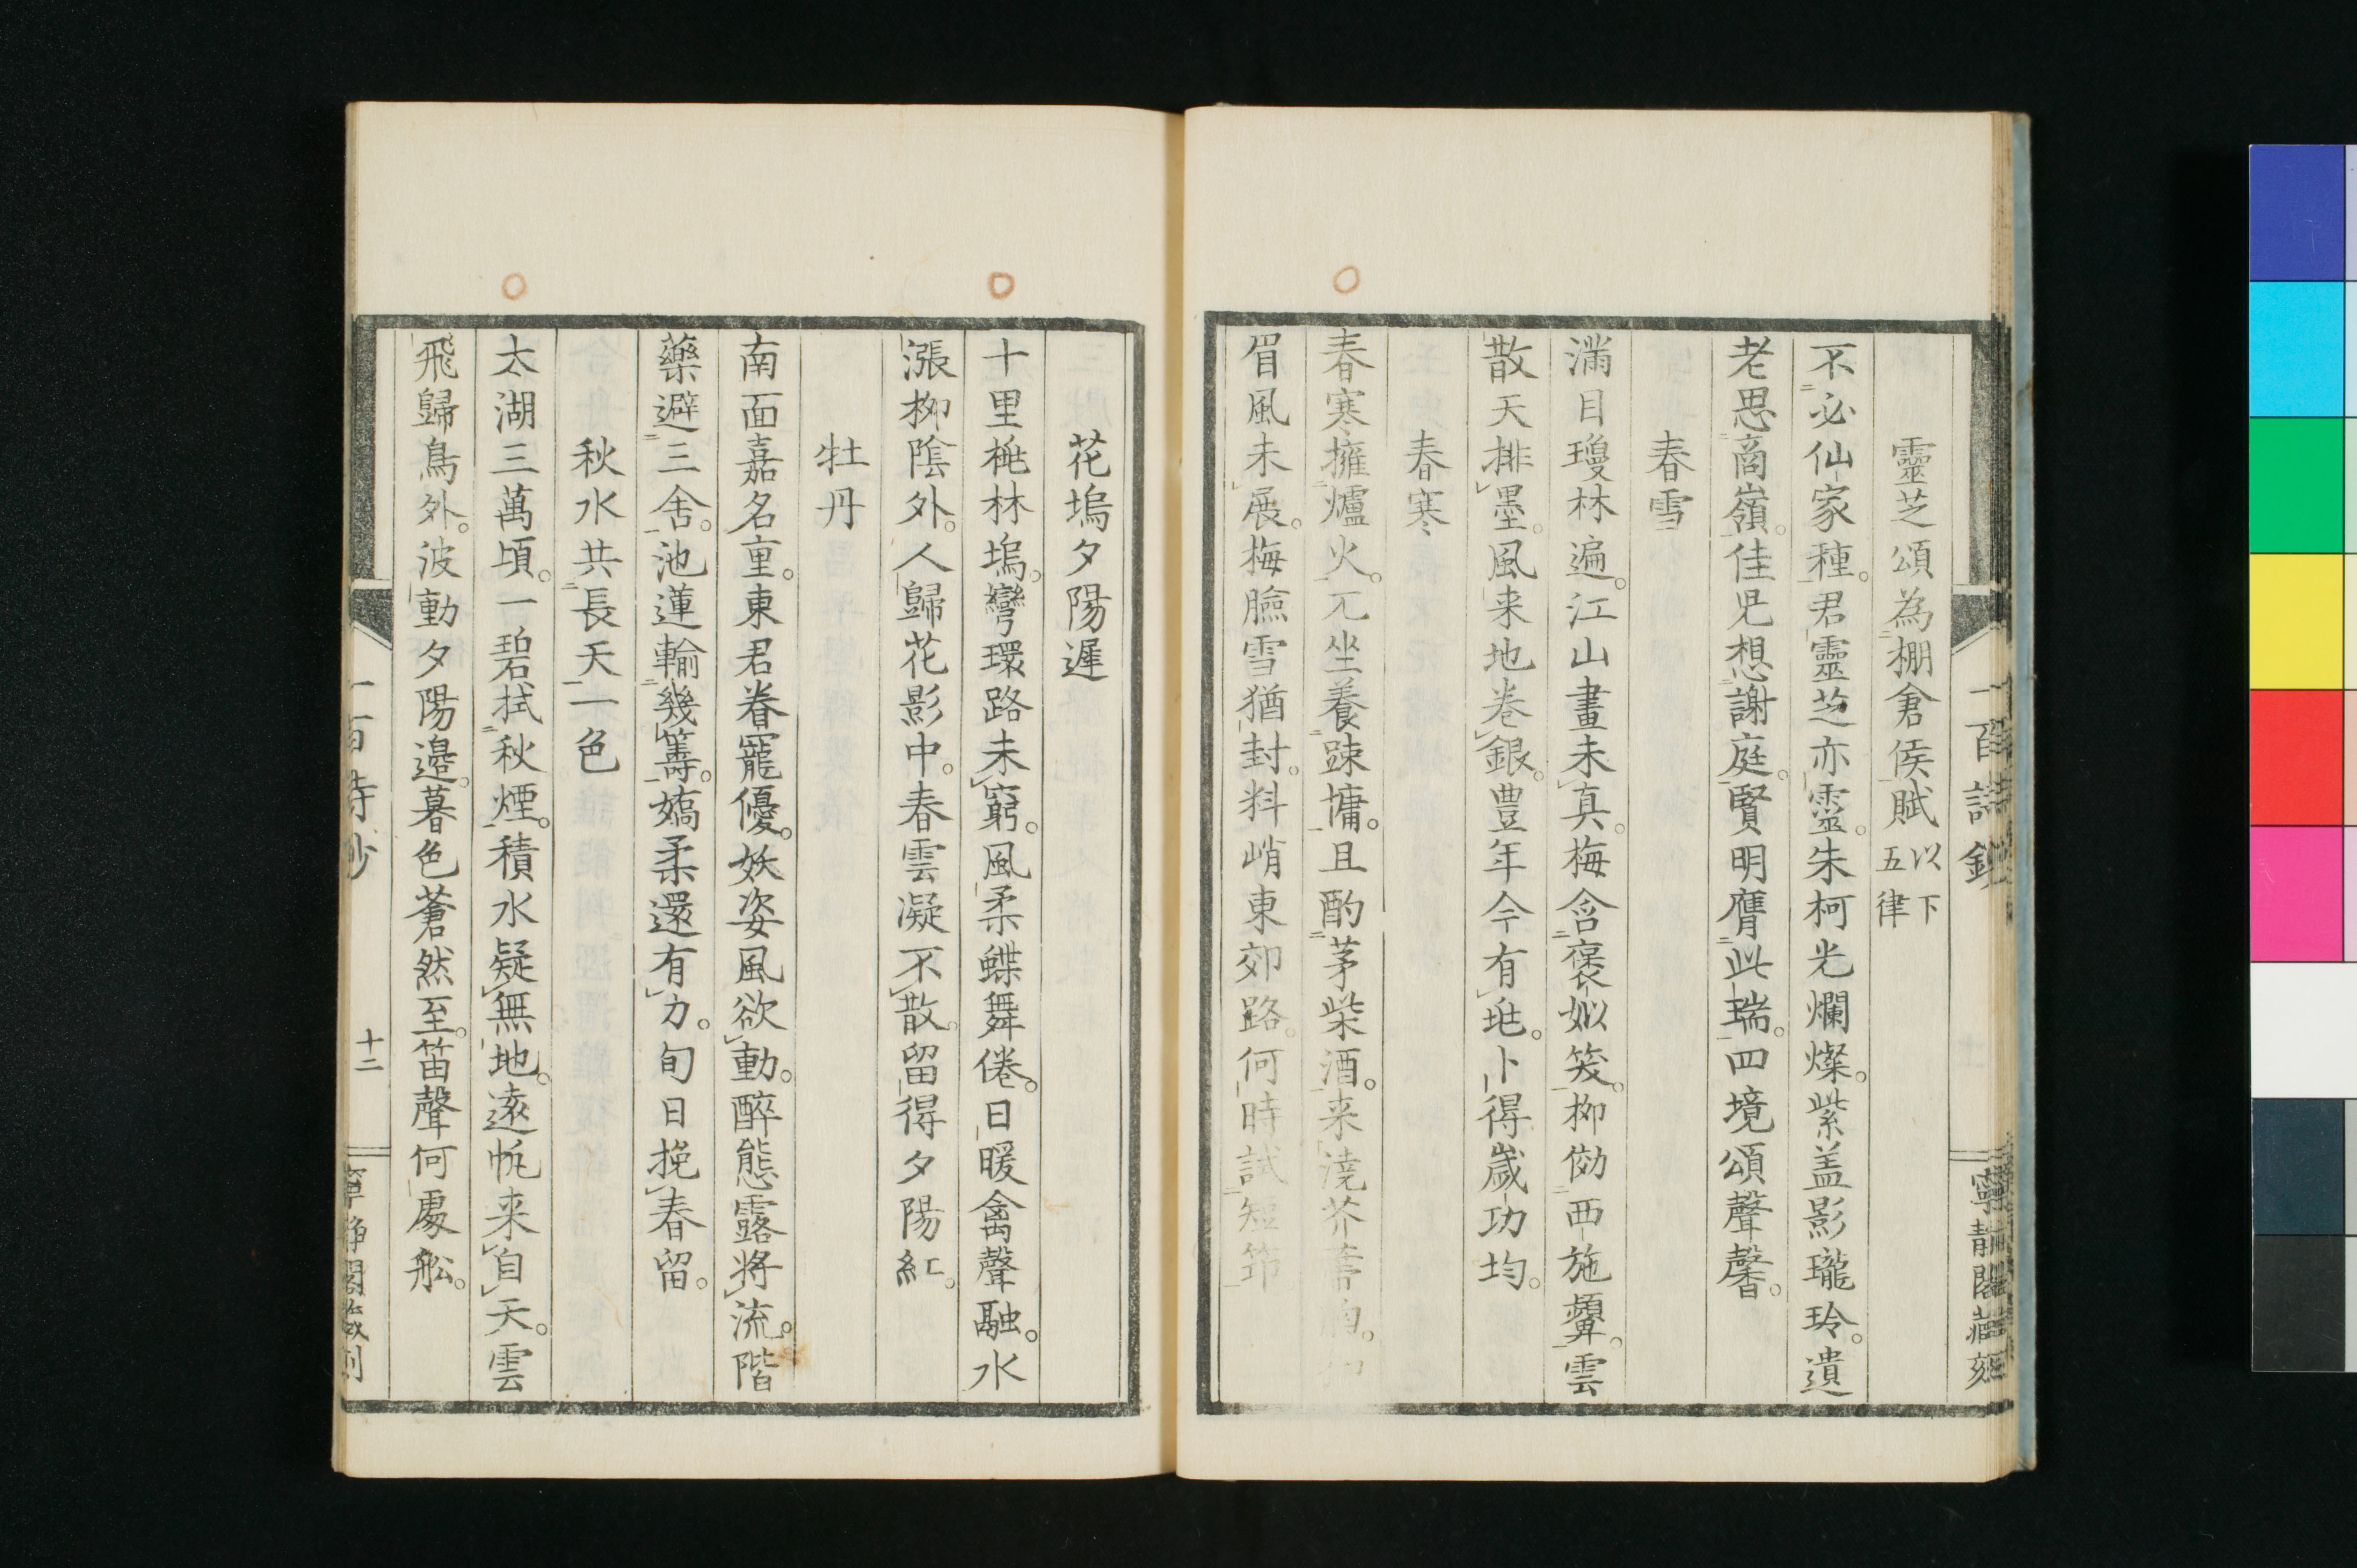 靈芝頌為棚倉侯賦以下五律
不必仙家種。君靈芝亦靈。朱柯光爛燦。紫盖影瓏玲。遺
老思商嶺。佳児想謝庭。賢明膺此瑞。四境頌聲馨。
春雪
滿目瓊林遍。江山畫未真。梅含褒姒笑。柳傚西施顰。雲
散天排墨。風来地巻銀。豊年今有兆。卜得歲功均。
春寒
春寒擁爐火。兀坐養踈慵。且酌茅柴酒。来澆芥蔕胸。
眉風未展。梅臉雪猶封。料峭東郊路。何時試短笻
一百詩鈔
寧静閣藏刻
花塢夕陽遲
十里桃林塢。彎環路未窮。風柔蝶舞倦。日暖禽聲融。水
漲柳陰外。人歸花影中。春雲凝不散。留得夕陽紅。
牡丹
南面嘉名重。東君眷寵優。妖姿風欲動。醉態露將流。階
藥避三舍。池蓮輸幾籌。嬌柔還有力。旬日挽春留。
秋水共長天一色
太湖三萬頃。一碧拭秋煙。積水疑無地。遠帆来自天。雲
飛歸鳥外。波動夕陽邊。暮色蒼然至。笛聲何處船。
一百詩鈔
十二
寧静閣藏刻